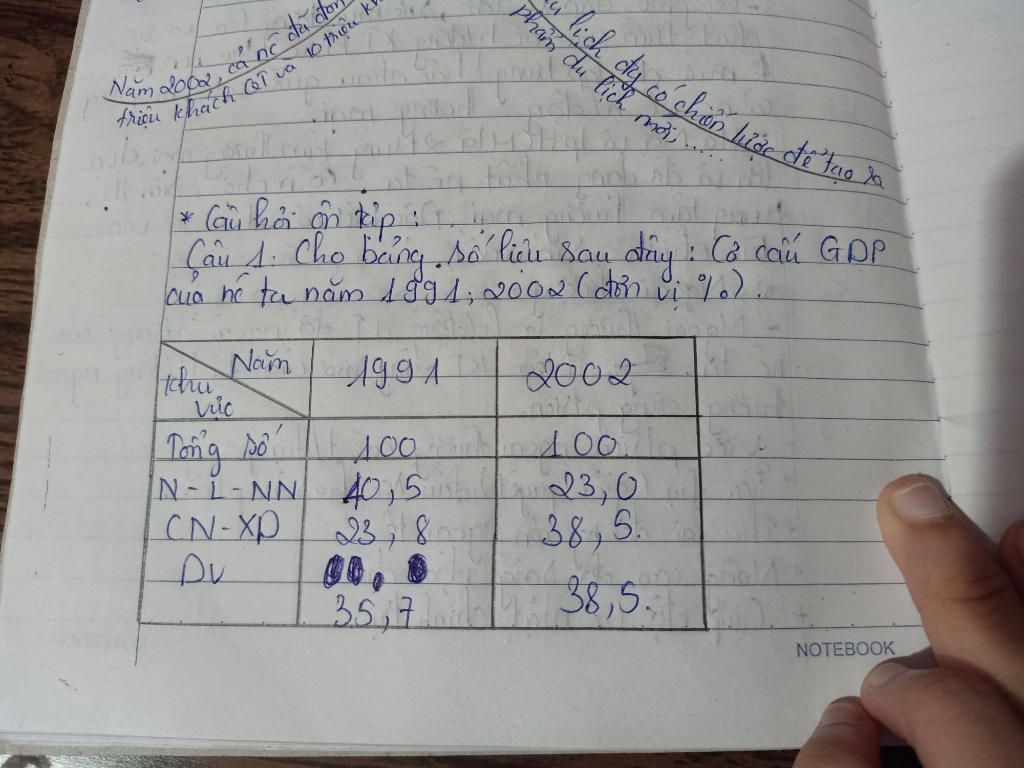 Năm 2002, cả nc đã đón
triệu khách QT và 10 triệu kh
lịch đg có chiến lược để tạo ra
phẩm du lịch mới.....
* Câu hỏi ôn tập:
Câu 1. Cho bảng số liệu sau đây: Cơ cấu GDP
của nc ta năm 1991, 2002 (đơn vị %).
Năm 1991 2002
Khu vực
Tổng số 100 100
N-L-NN 40,5 23,0
CN-XD 23,8 38,5.
DV
35,7 38,5.
NOTEBOOK